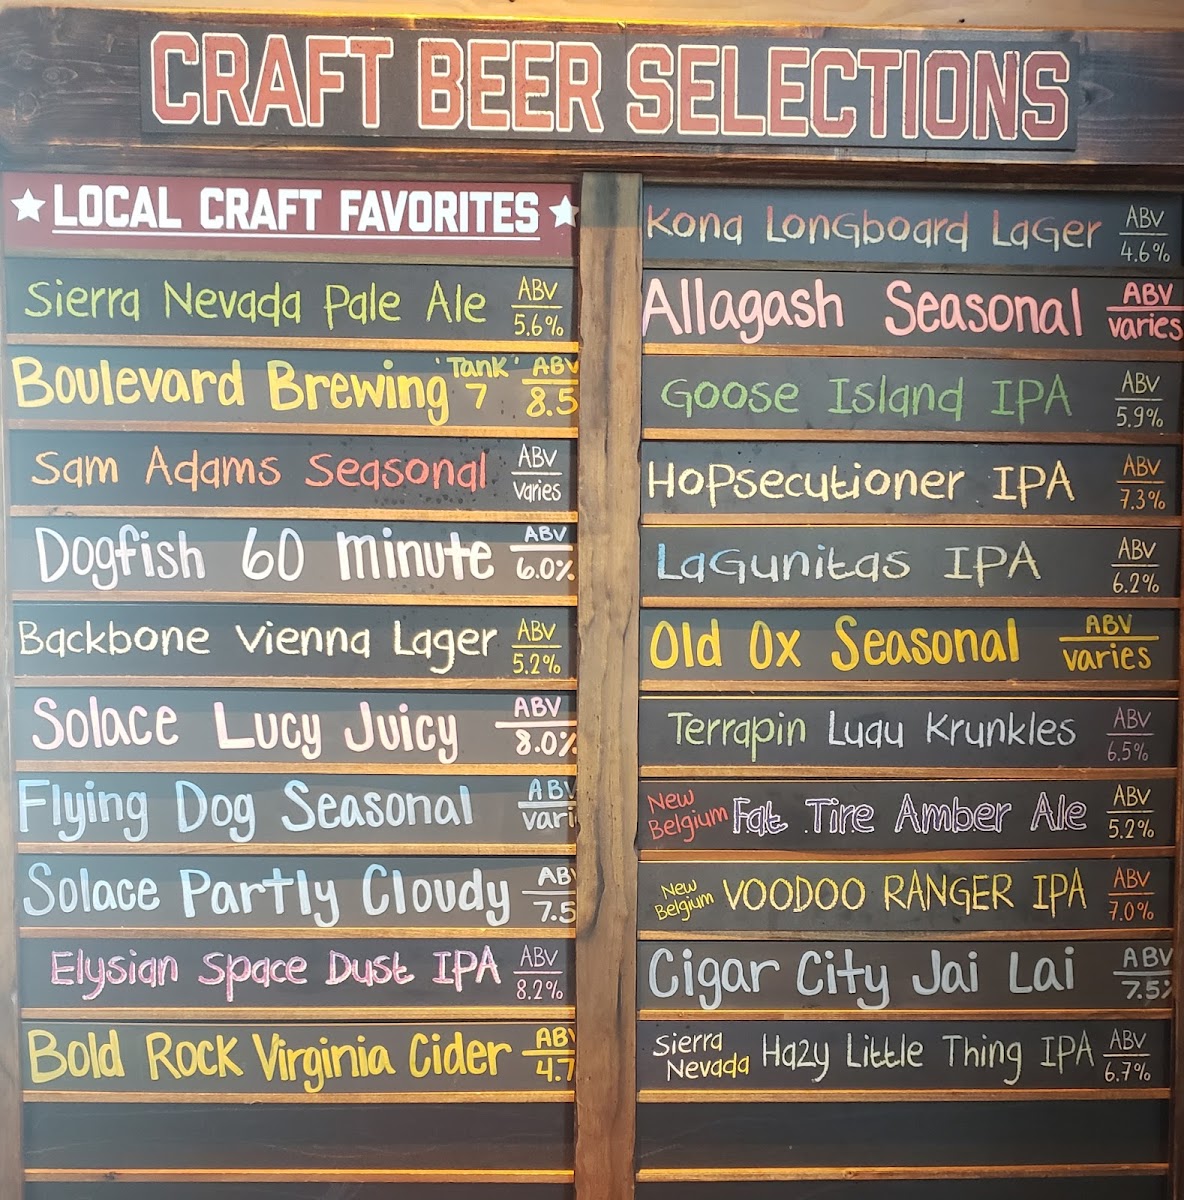 CRAFT BEER SELECTIONS
LOCAL CRAFT FAVORITES
Sierra Nevada Pale Ale ABV 5.6%
Boulevard Brewing 'Tank' 7 ABV 8.5
Sam Adams Seasonal ABV varies
Dogfish 60 minute ABV 6.0%
Backbone Vienna Lager ABV 5.2%
Solace Lucy Juicy ABV 8.0%
Flying Dog Seasonal ABV vari
Solace Partly Cloudy AB 7.5
Elysian Space Dust IPA ABV 8.2%
Bold Rock Virginia Cider ABV 4.7
Kona Longboard Lager ABV 4.6%
Allagash Seasonal ABV varies
Goose Island IPA ABV 5.9%
Hopsecutioner IPA ABV 7.3%
Lagunitas IPA ABV 6.2%
Old Ox Seasonal ABV varies
Terrapin Luau Krunkles ABV 6.5%
New Belgium Fat Tire Amber Ale ABV 5.2%
New Belgium VOODOO RANGER IPA ABV 7.0%
Cigar City Jai Lai ABV 7.5%
Sierra Nevada Hazy Little Thing IPA ABV 6.7%